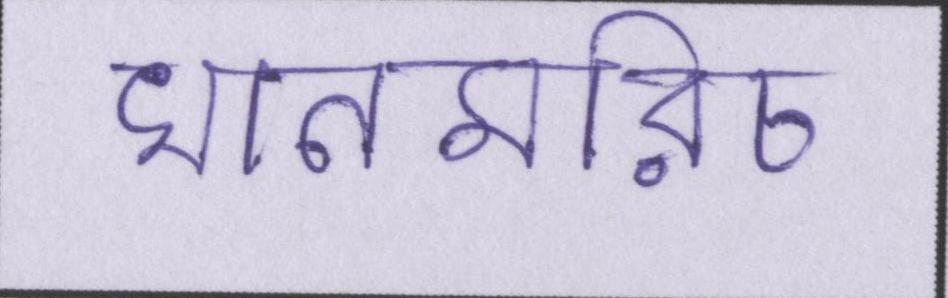 ধানমরিচ